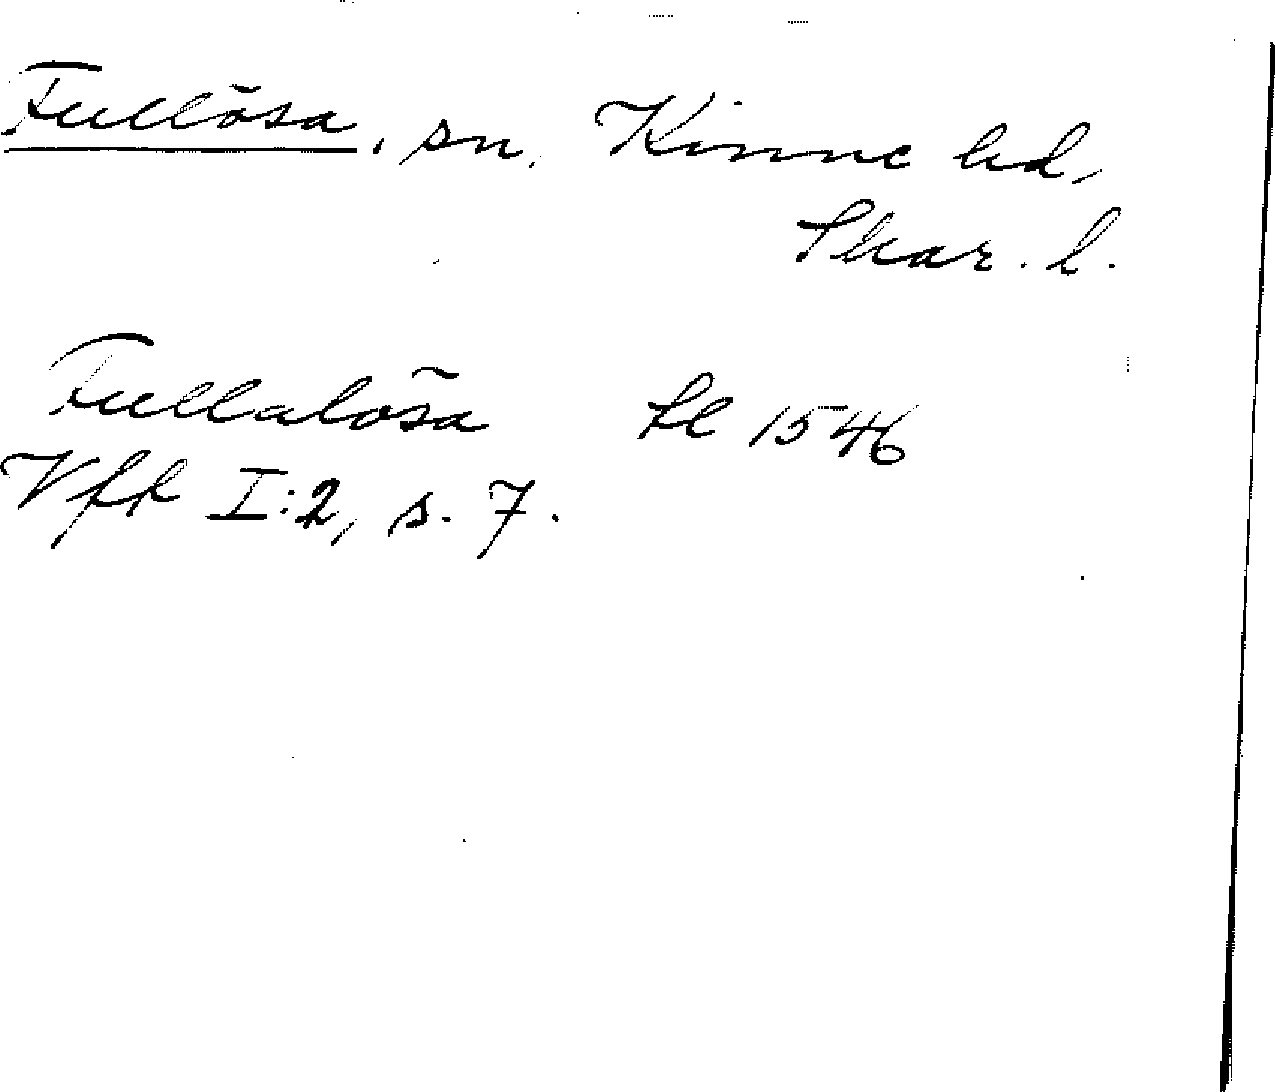 Fullösa, sn, Kinne hd,
Skar. l.
Fullalösa fl 1546
Vfk I:2, s. 7.